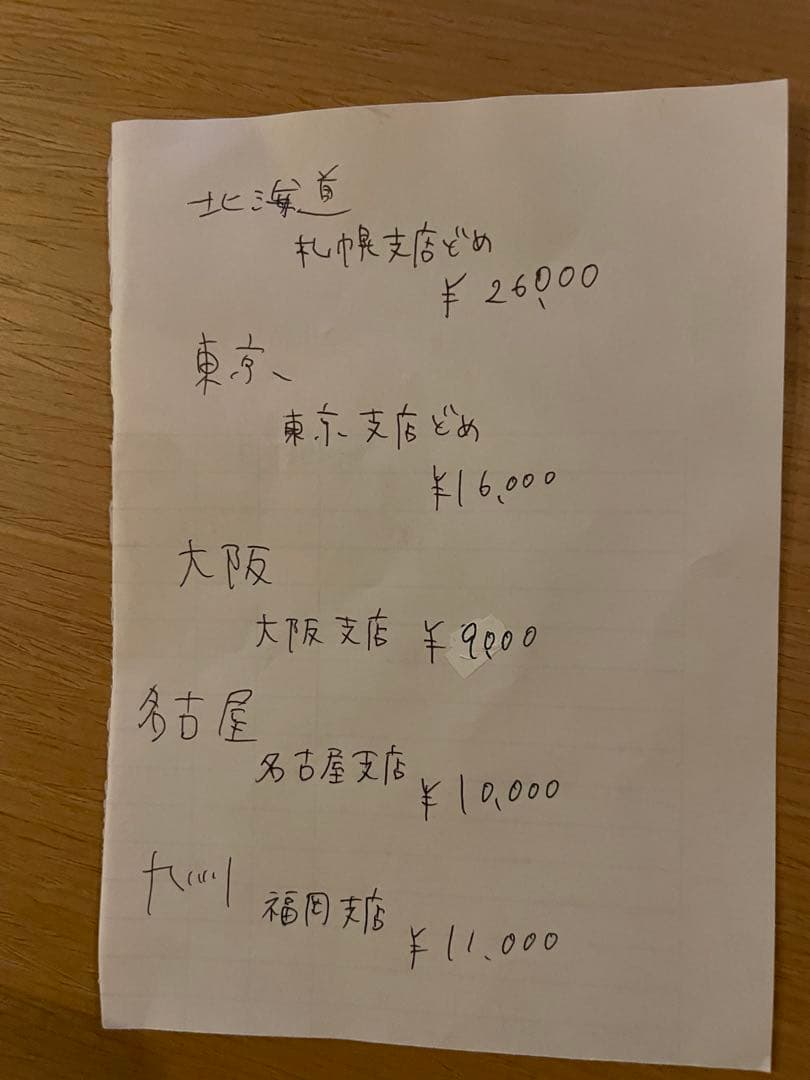 北海道
札幌支店どめ
¥26,000
東京
東京支店どめ
¥16,000
大阪
大阪支店 ¥9000
名古屋
名古屋支店
¥10,000
九州
福岡支店
¥11,000